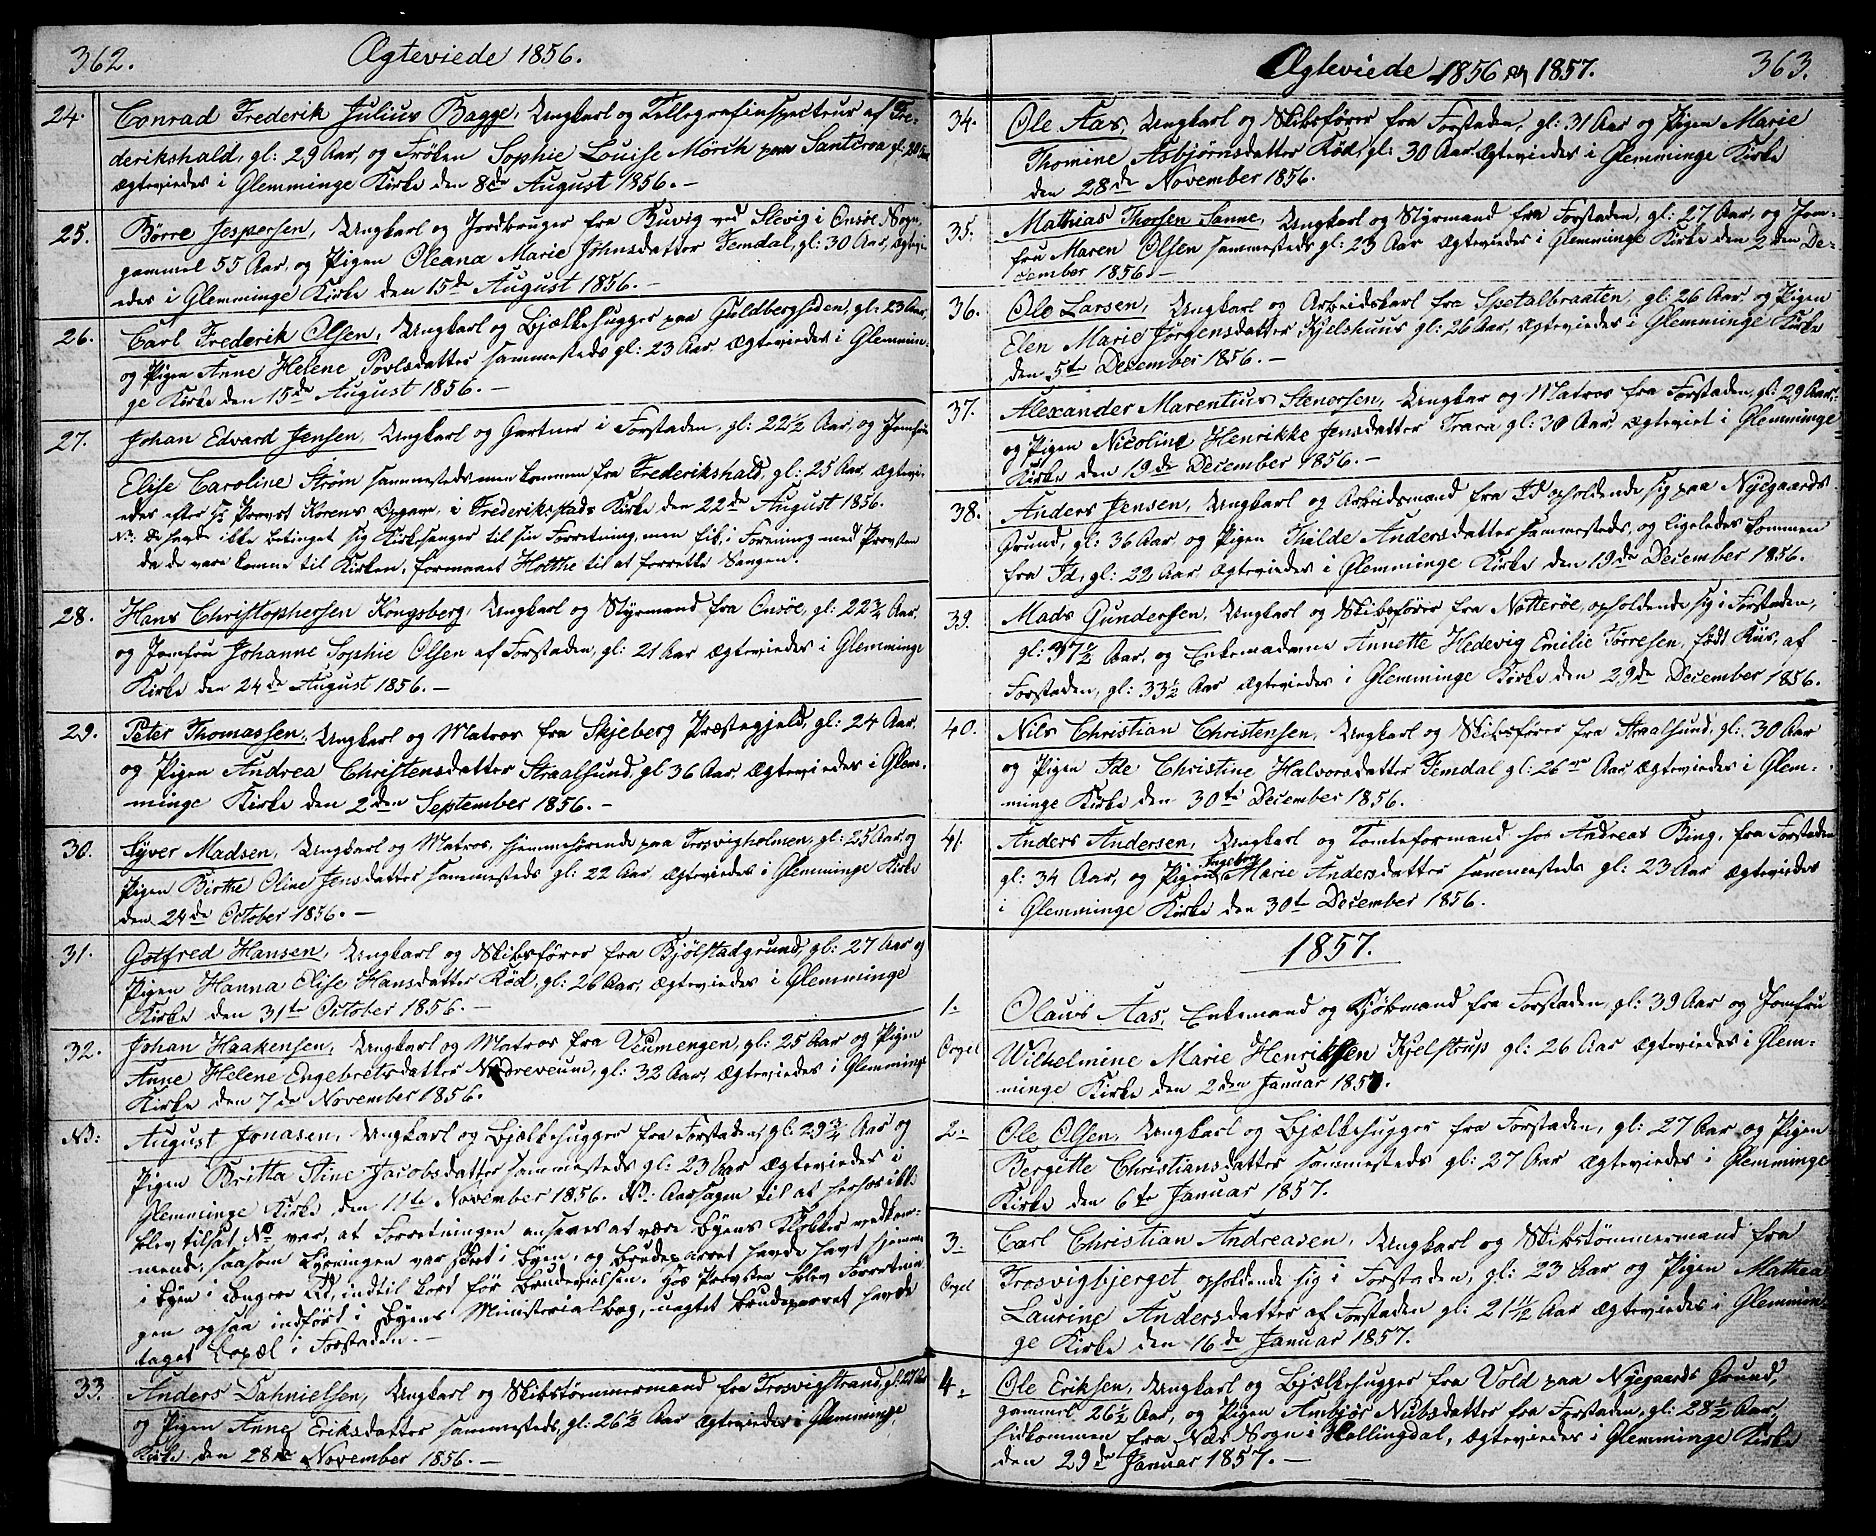 362.
Ægteviede 1856.
24. Conrad Frederik Julius Bagge, Ungkarl og Tellegrafinspecteur af Fre-
derikshald, gl: 29 Aar, og Frøken Sophie Louise Mörch paa Santeroa gl: 20 Aar
Ægteviedes i Glemminge Kirke den 8de August 1856. -
25. Börre Jespersen, Ungkarl og Jordbruger fra Buvig ved Slevig i Onsøe Sogn,
gammel 55 Aar, og Pigen Oleana Marie Johnsdatter Femdal, gl: 30 Aar, Ægtevi-
edes i Glemminge Kirke den 15de August 1856. -
26. Carl Frederik Olsen, Ungkarl og Bjælkehugger paa Guldbergsiden, gl: 23 Aar,
og Pigen Anne Helene Povlsdatter sammesteds gl: 23 Aar. Ægteviedes i Glemmin-
ge Kirke den 15de August 1856. -
27. Johan Edvard Jensen, Ungkarl og Gartner i Forstaden, gl: 22½ Aar, og Jomfru
Elise Caroline Strøm sammesteds men kommen fra Frederikshald, gl: 25 Aar, Ægtevi-
edes efter Hr Provst Korens Opgave, i Frederikstads Kirke den 22de August 1856.
NB: De havde ikke betinget sig Kirkesanger til sin Forretning, men blev i Forening med Provsten
da de vare komne til Kirken, formaaet Hotthe til at forrette Sangen.
28. Hans Christophersen Kongsberg, Ungkarl og Styrmand fra Onsøe, gl: 22¾ Aar,
og Jomfru Johanne Sophie Olsen af Forstaden, gl: 21 Aar Ægteviedes i Glemminge
Kirke den 24de August 1856. -
29. Peter Thomassen, Ungkarl og Matros fra Skjeberg Præstegjeld, gl: 24 Aar,
og Pigen Andrea Christensdatter Straalsund, gl 36 Aar, Ægteviedes i Glem-
minge Kirke den 2den September 1856. -
30. Syver Madsen, Ungkarl og Matros, hjemmehørende paa Trosvigholmen, gl: 25 Aar, og
Pigen Birthe Oline Jensdatter sammesteds gl: 22 Aar Ægteviedes i Glemminge Kirke
den 24de October 1856. -
31. Gotfred Hansen, Ungkarl og Skibsfører fra Kjølstadgrund, gl: 27 Aar og
Pigen Hanna Elise Hansdatter Röd, gl: 26 Aar, Ægteviedes i Glemminge
Kirke den 31te October 1856. -
32. Johan Haakensen, Ungkarl og Matros fra Veumengen, gl: 25 Aar og Pigen
Anne Helene Engebretsdatter Nedreveum, gl: 32 Aar, Ægteviedes i Glemminge
Kirke den 7de November 1856.
NB: August Jonasen, Ungkarl og Bjælkehugger fra Forstaden, gl: 29¾ Aar og
Pigen Britta Stine Jacobsdatter sammesteds gl: 23 Aar Ægteviedes i
Glemminge Kirke den 11te November 1856. NB: Aarsagen til at herhos ikke
blev tilsat No var, at Forretningen ansees at være Byens Klokker vedkom-
mende, saasom Lysningen var skeet i Byen, og Brudeparret havde havt hjemme
i Byen i længere Tid, indtil kort før Brudevielsen. Hos Provsten blev Forretnin-
gen ogsaa indført i Byens Ministerialbog, uagtet Brudeparret havde
taget Bopæl i Forstaden. -
33. Anders Dahnielsen, Ungkarl og Skibstømmermand fra Trosvigstrand, gl: 27 Aar
og Pigen Anne Eriksdatter sammesteds, gl: 26½ Aar Ægteviedes i Glemminge
Kirke den 28de November 1856. -
Ægteviede 1856 og 1857.
363.
34. Ole Aas, Ungkarl og Skibsfører fra Forstaden, gl: 31 Aar og Pigen Marie
Thomine Asbjørnsdatter Röd, gl: 30 Aar Ægteviedes i Glemminge Kirke
den 28de November 1856.
35. Mathias Thorsen Sanne, Ungkarl og Styrmand fra Forstaden, gl: 27 Aar, og Jom-
fru Maren Olsen sammesteds gl: 23 Aar Ægteviedes i Glemminge Kirke den 2den De-
cember 1856. -
36. Ole Larsen, Ungkarl og Arbeidskarl fra Spetalbraaten, gl: 26 Aar og Pigen
Elen Marie Jörgensdatter Kjelshuus gl: 26 Aar, Ægteviedes i Glemminge Kirke
den 5te December 1856. -
37. Alexander Marentius Stenersen, Ungkar og Matros fra Forstaden, gl: 29 Aar,
og Pigen Nicoline Henrikke Jensdatter Trara gl: 30 Aar Ægteviet i Glemminge
Kirke den 19de December 1856. -
38. Anders Jensen, Ungkarl og Arbeidsmand fra Id opholdende sig paa Nyegaards-
Grund, gl: 36 Aar og Pigen Thilde Andersdatter sammesteds, og ligeledes kommen
fra Id, gl: 22 Aar Ægteviedes i Glemminge Kirke den 19de December 1856.
39. Mads Gundersen, Ungkarl og Skibsfører fra Nötterøe, opholdende sig i Forstaden,
gl: 37½ Aar, og Enkemadame Annette Hedevig Emilie Torresen, født Kiis, af
Forstaden, gl: 33½ Aar Ægteviedes i Glemminge Kirke den 29de December 1856.
40. Nils Christian Christensen, Ungkarl og Skibsfører fra Straalsund, gl: 30 Aar
og Pigen Ide Christine Halvorsdatter Femdal gl: 26 Aar Ægteviedes i Glem-
minge Kirke den 30te December 1856.
41. Anders Andersen, Ungkarl og Tomteformand hos Andreas Bing, fra Forstaden
gl: 34 Aar, og Pigen Ingeborg Marie Andersdatter sammesteds gl: 23 Aar Ægteviedes
i Glemminge Kirke den 30te December 1856.
1857.
1. Olaus Aas, Enkemand og Kjøbmand fra Forstaden, gl: 39 Aar og Jomfru
Orgel Wilhelmine Marie Henriksen Kjelstrup gl: 26 Aar Ægteviedes i Glem-
minge Kirke den 2den Januar 1857.
2. Ole Olsen, Ungkarl og Bjælkehugger fra Forstaden, gl: 27 Aar og Pigen
Bergitte Christiansdatter sammesteds gl: 27 Aar Ægteviedes i Glemminge
Kirke den 6te Januar 1857.
3. Carl Christian Andreasen, Ungkarl og Skibstømmermand fra
Orgel Trosvigbjerget opholdende sig i Forstaden, gl: 23 Aar og Pigen Mathea
Laurine Andersdatter af Forstaden gl: 21½ Aar Ægteviedes i Glemmin-
ge Kirke den 16de Januar 1857.
4. Ole Eriksen, Ungkarl og Bjælkehugger fra Vold paa Nyegaards Grund,
gammel 26½ Aar, og Pigen Ambjör Nubsdatter fra Forstaden, gl: 28½ Aar,
hidkommen fra Næs Sogn i Hallingdal, Ægteviedes i Glemminge Kirke
den 29de Januar 1857. -